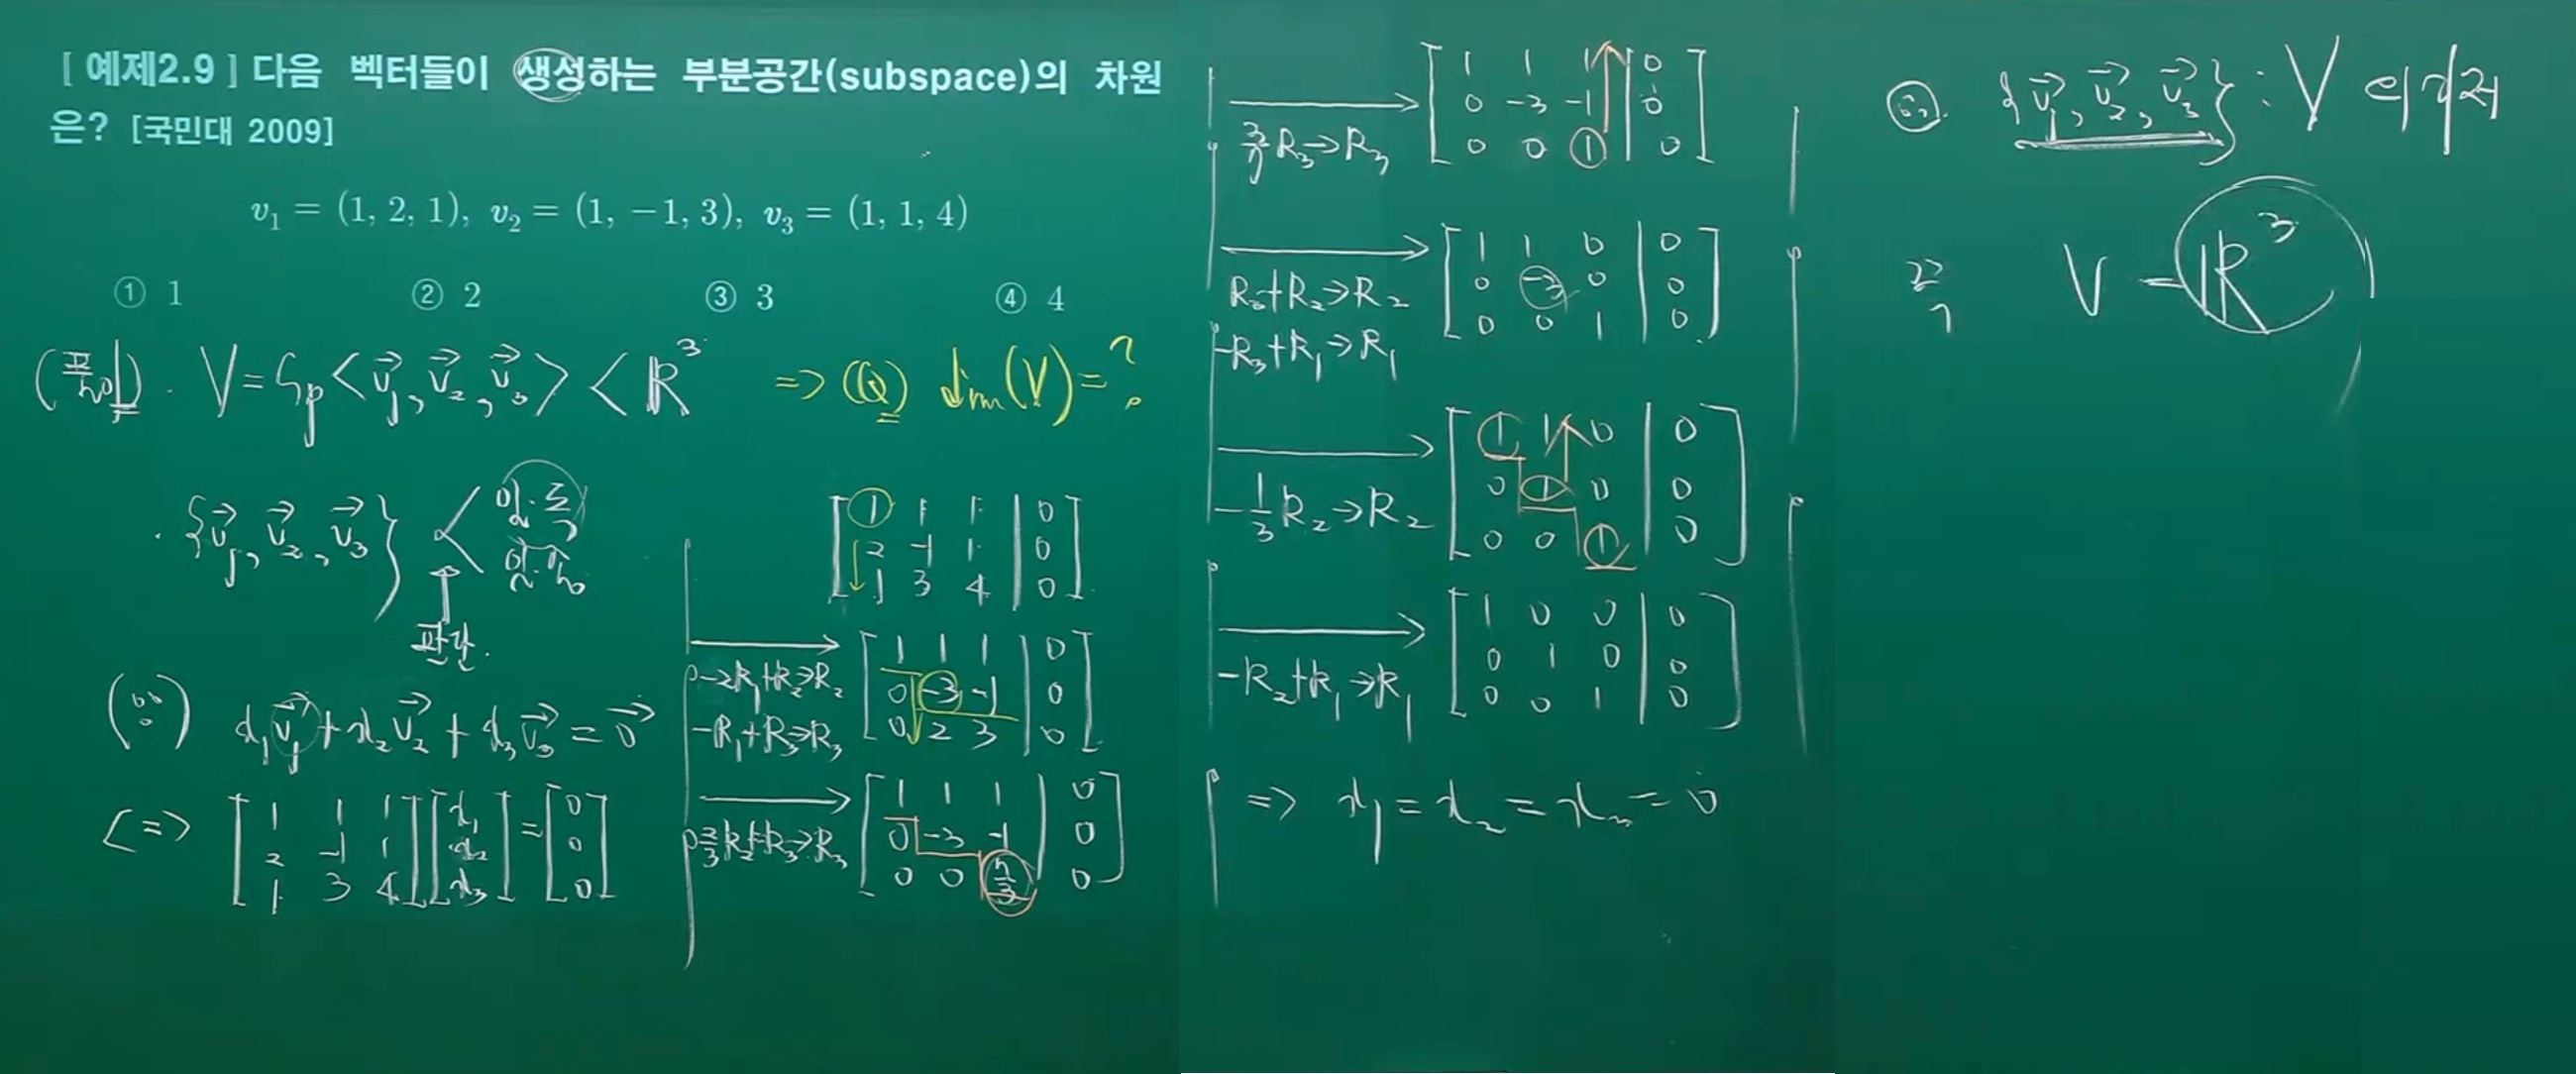 [ 예제2.9 ] 다음 벡터들이 생성하는 부분공간(subspace)의 차원
은? [국민대 2009]
v₁ = (1, 2, 1), v₂ = (1, −1, 3), v₃ = (1, 1, 4)
① 1 ② 2 ③ 3 ④ 4
(풀이). V = Sp<v₁, v₂, v₃> < ℝ³ => (Q) dim(V) = ?
· {v₁, v₂, v₃} < 일.독
일.종
판단.
(∵) x₁v₁ + x₂v₂ + x₃v₃ = 0
<=> [1 1 1
2 -1 1
1 3 4] [x₁
x₂
x₃] = [0
0
0]
[1 1 1 | 0
2 -1 1 | 0
1 3 4 | 0]
-2R₁+R₂→R₂
-R₁+R₃→R₃
[1 1 1 | 0
0 -3 -1 | 0
0 2 3 | 0]
2/3 R₂+R₃→R₃
[1 1 1 | 0
0 -3 -1 | 0
0 0 7/3 | 0]
3/7 R₃→R₃
[1 1 1 | 0
0 -3 -1 | 0
0 0 1 | 0]
R₃+R₂→R₂
-R₃+R₁→R₁
[1 1 0 | 0
0 -3 0 | 0
0 0 1 | 0]
-1/3 R₂→R₂
[1 1 0 | 0
0 1 0 | 0
0 0 1 | 0]
-R₂+R₁→R₁
[1 0 0 | 0
0 1 0 | 0
0 0 1 | 0]
=> x₁ = x₂ = x₃ = 0
∴ {v₁, v₂, v₃} : V의 기저
V = ℝ³